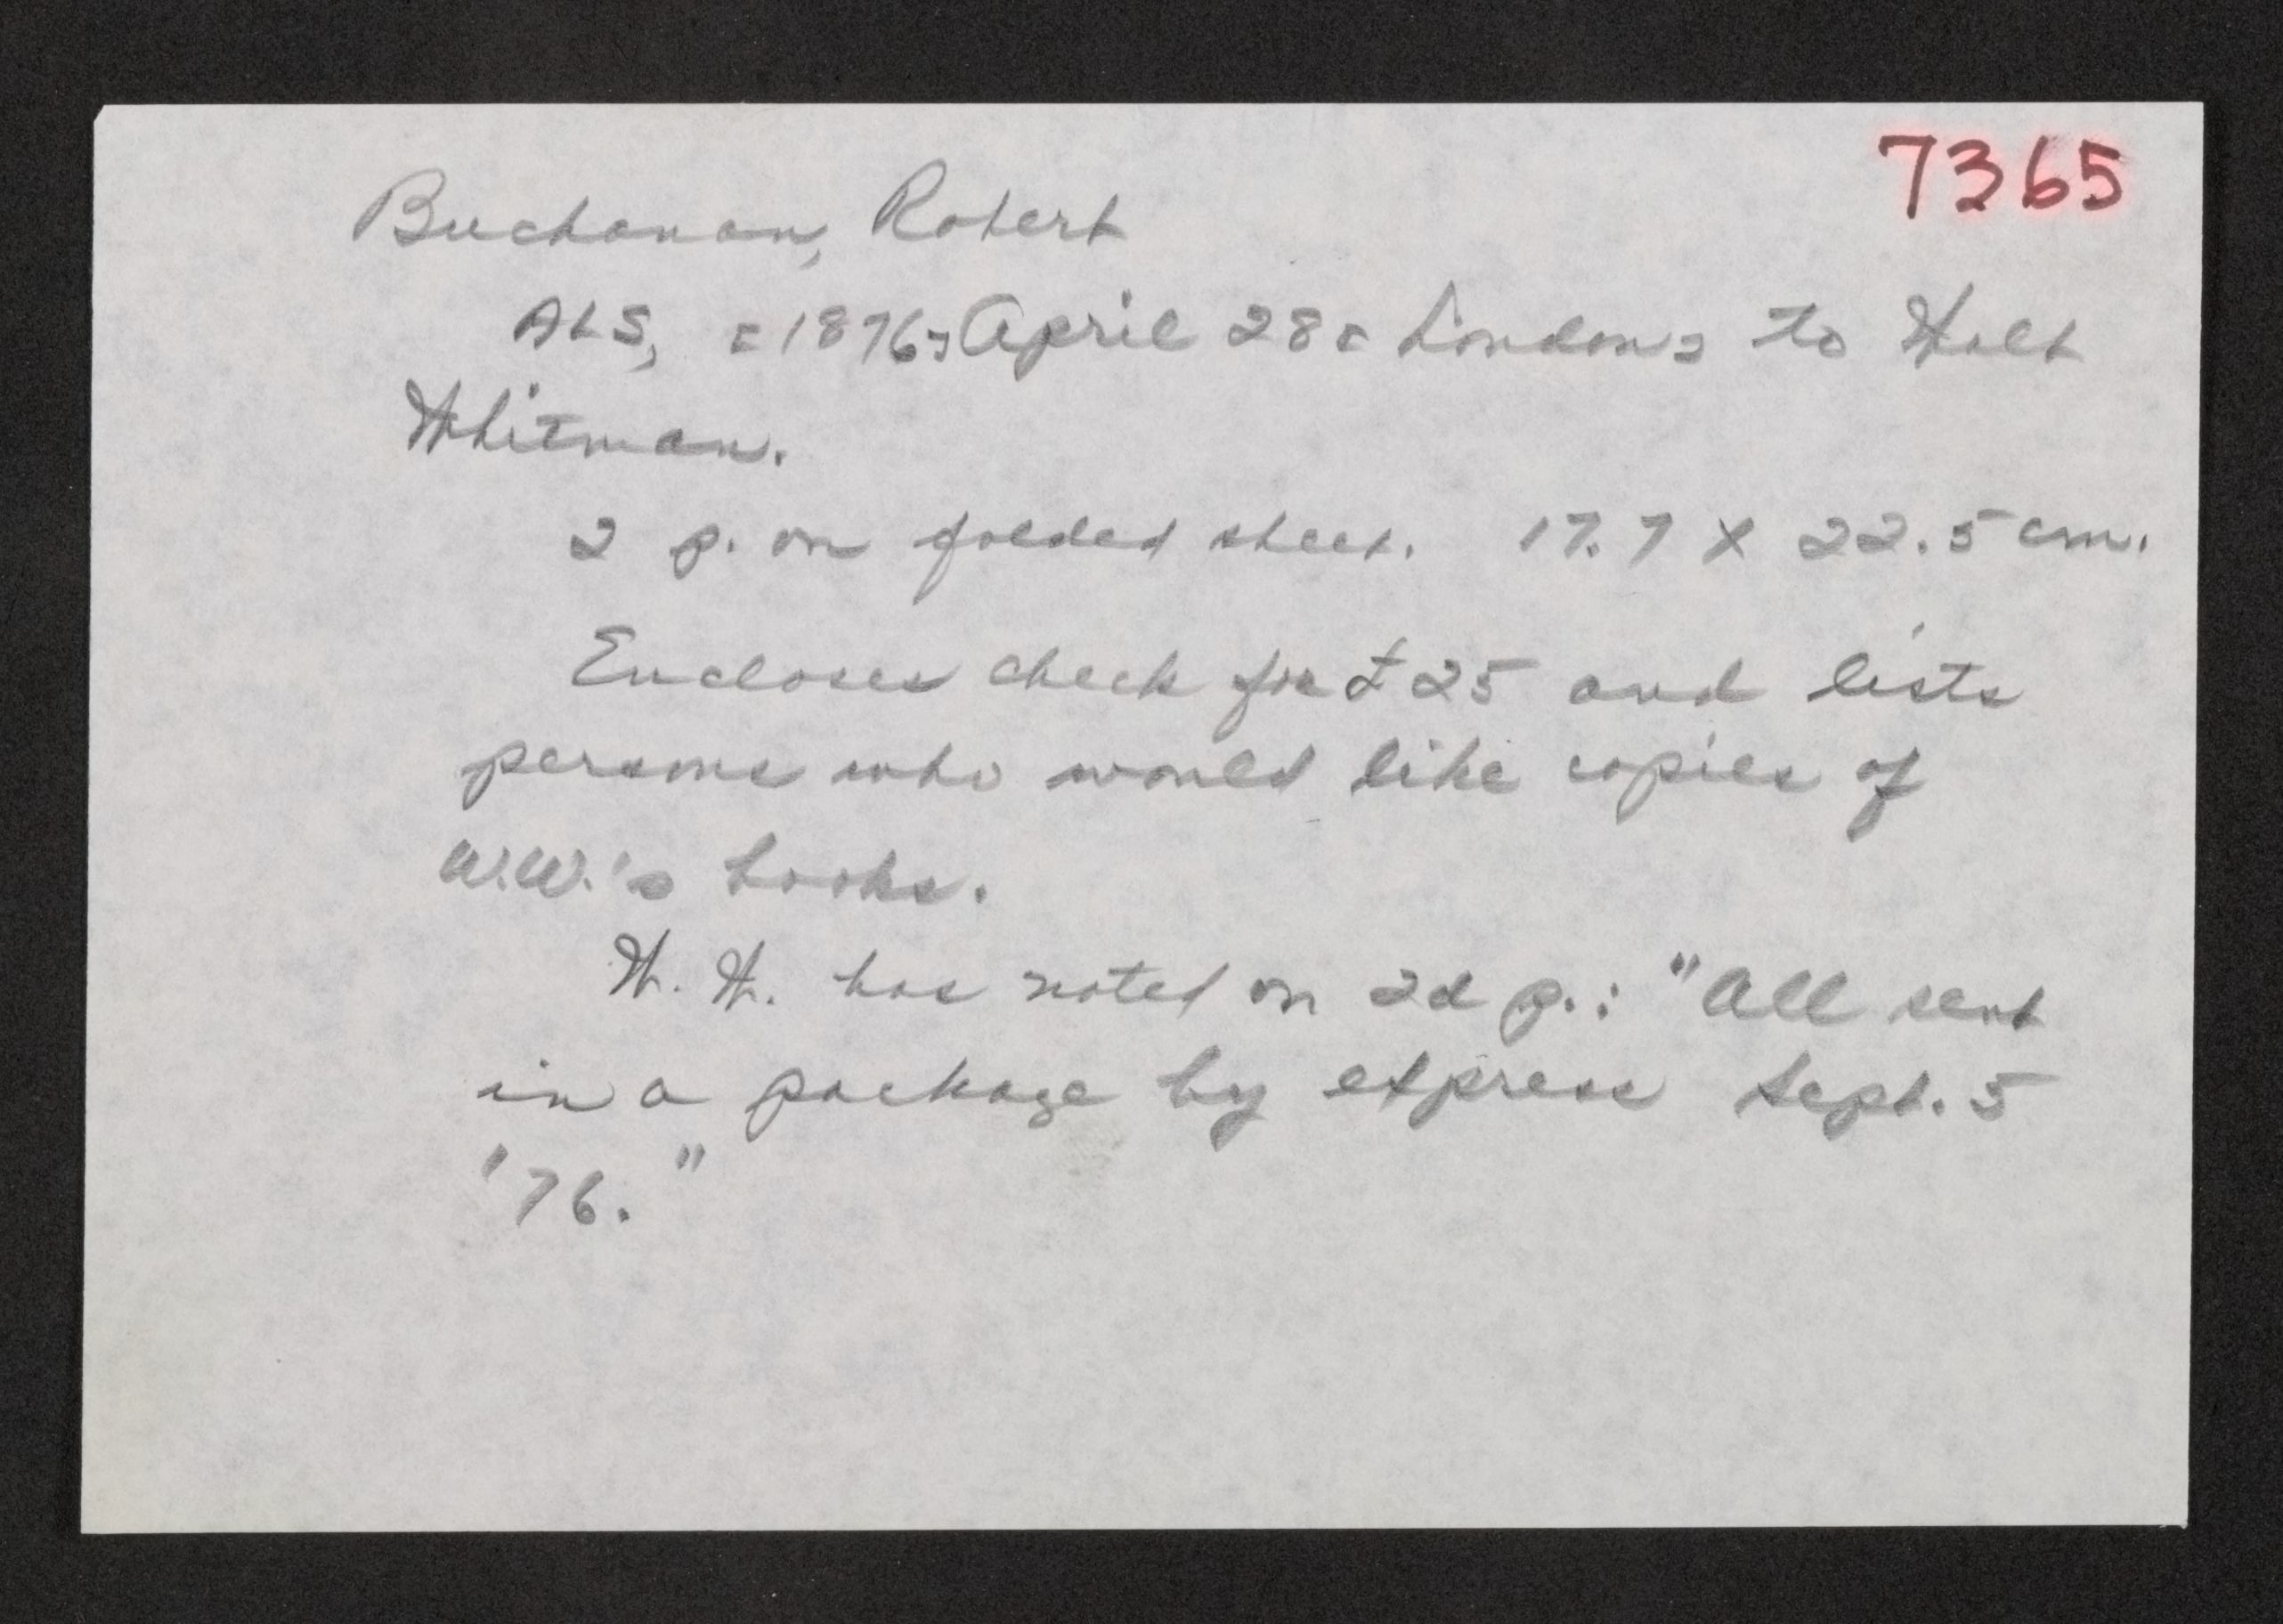 7365
Buchanan, Robert
ALS, [1876] April 28 [London] to Walt
Whitman.
2 p. on folded sheet. 17.7 X 22.5 cm.
Encloses check for £25 and lists
persons who would like copies of
W.W.'s books.
W. W. has noted on 2d p.: "All sent
in a package by express Sept. 5
'76."